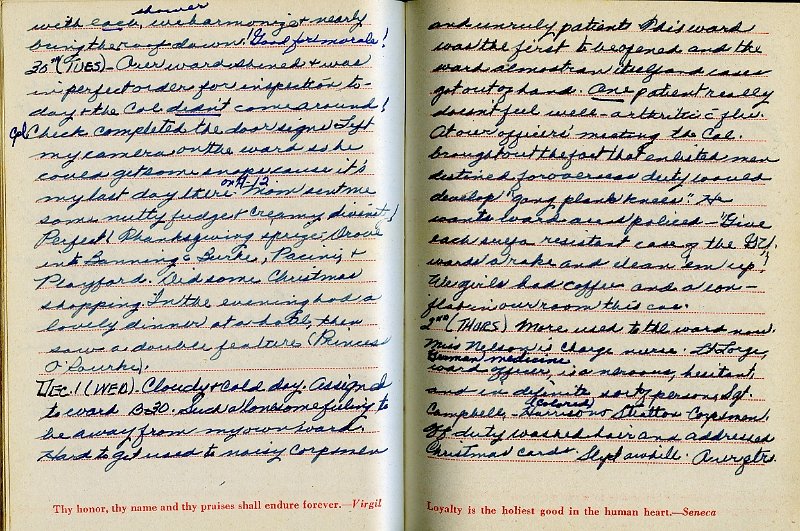 shower
with each, we harmonize & nearly
bring the roof down! Good for morale!
30th (TUES) - Our ward shined & was
in perfect order for inspection to-
day & the Col. didn't come around!
Cpl. Chick completed the door signs & left
my camera on the ward so he
could get some snaps because it's
my last day there on A-12. Mom sent me
some nutty fudge & creamy divinity!
Perfect Thanksgiving spree. Drove
into Banning & Burke, Pacini, &
Playford. Did some Christmas
shopping. In the evening had a
lovely dinner at a hotel, then
saw a double feature (Princess
O'Rourke).
DEC. 1 (WED) - Cloudy & cold day. Assigned
to ward B-30. Such a lonesome feeling to
be away from my own ward.
Hard to get used to noisy corpsmen
Thy honor, thy name and thy praises shall endure forever.—Virgil
and unruly patients. This ward
was the first to be opened and the
ward almost ran itself and cases
got out of hand. One patient really
doesn't feel well - arthritic & flu.
At our officers' meeting the Col.
brought out the fact that enlisted men
destined for overseas duty would
develop "gang plank knees." He
wants ward areas policed - "Give
each sulfa resistant case of the GU
wards a rake and clean 'em up."
We girls had coffee and a con-
flab in our room this eve.
2nd (THURS) More used to the ward now.
Miss Nelson is charge nurse. Lt.
German medicine
ward officer, is a nervous, hesitant
and indefinite sort of person. Sgt.
(colored)
Campbell - Harrison & Stratton Corpsmen.
Off duty washed hair and addressed
Christmas cards. Slept awhile.
Loyalty is the holiest good in the human heart.—Seneca